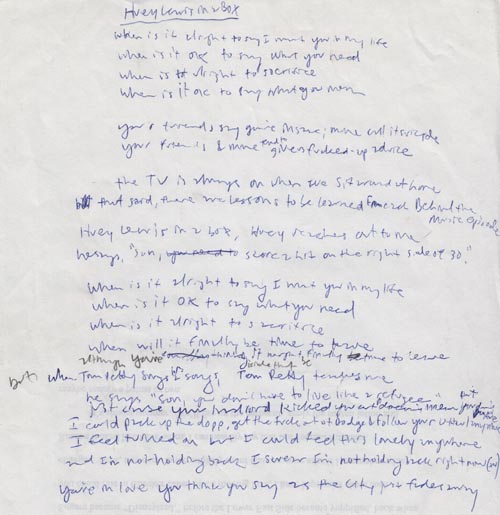 Huey Lewis in a Box
when is it alright to say I want you in my life
when is it OK to say what you need
when is it alright to sacrifice
when is it OK to say what you mean
your friends say you're insane; mine call it suicide
your friends & mine both give fucked-up advice
the TV is always on when we sit around at home
but that said, there are lessons to be learned from each Behind the
Music Episode
Huey Lewis in a box, Huey reaches out to me
he says, "Son, you need to score a hit on the right side of 30."
when is it alright to say I want you in my life
when is it OK to say what you need
when is it alright to sacrifice
when will it finally be time to leave
although you're thinking it might finally be time to leave
but when Tom Petty sings songs, Tom Petty tempts me
he says "son, you don't have to live like a refugee"
just cause your landlord kicked you out doesn't mean
I could pack up the dope, get the fuck out of dodge & follow your anywhere
I feel turned on but I could feel this lonely anywhere
and I'm not holding back I swear I'm not holding back right now
you're in love you think you say as the city just fades away